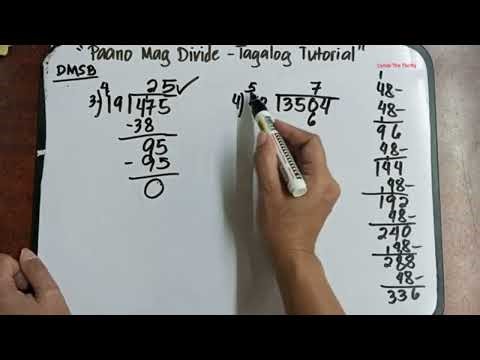 "Paano Mag Divide - Tagalog Tutorial"
DMSB
4
25 ✓
3) 19 475
-38
95
- 95
0
5 7
4) 8 3504
6
1
48-
48-
96
48-
144
48-
192
48-
240
48-
288
48-
336